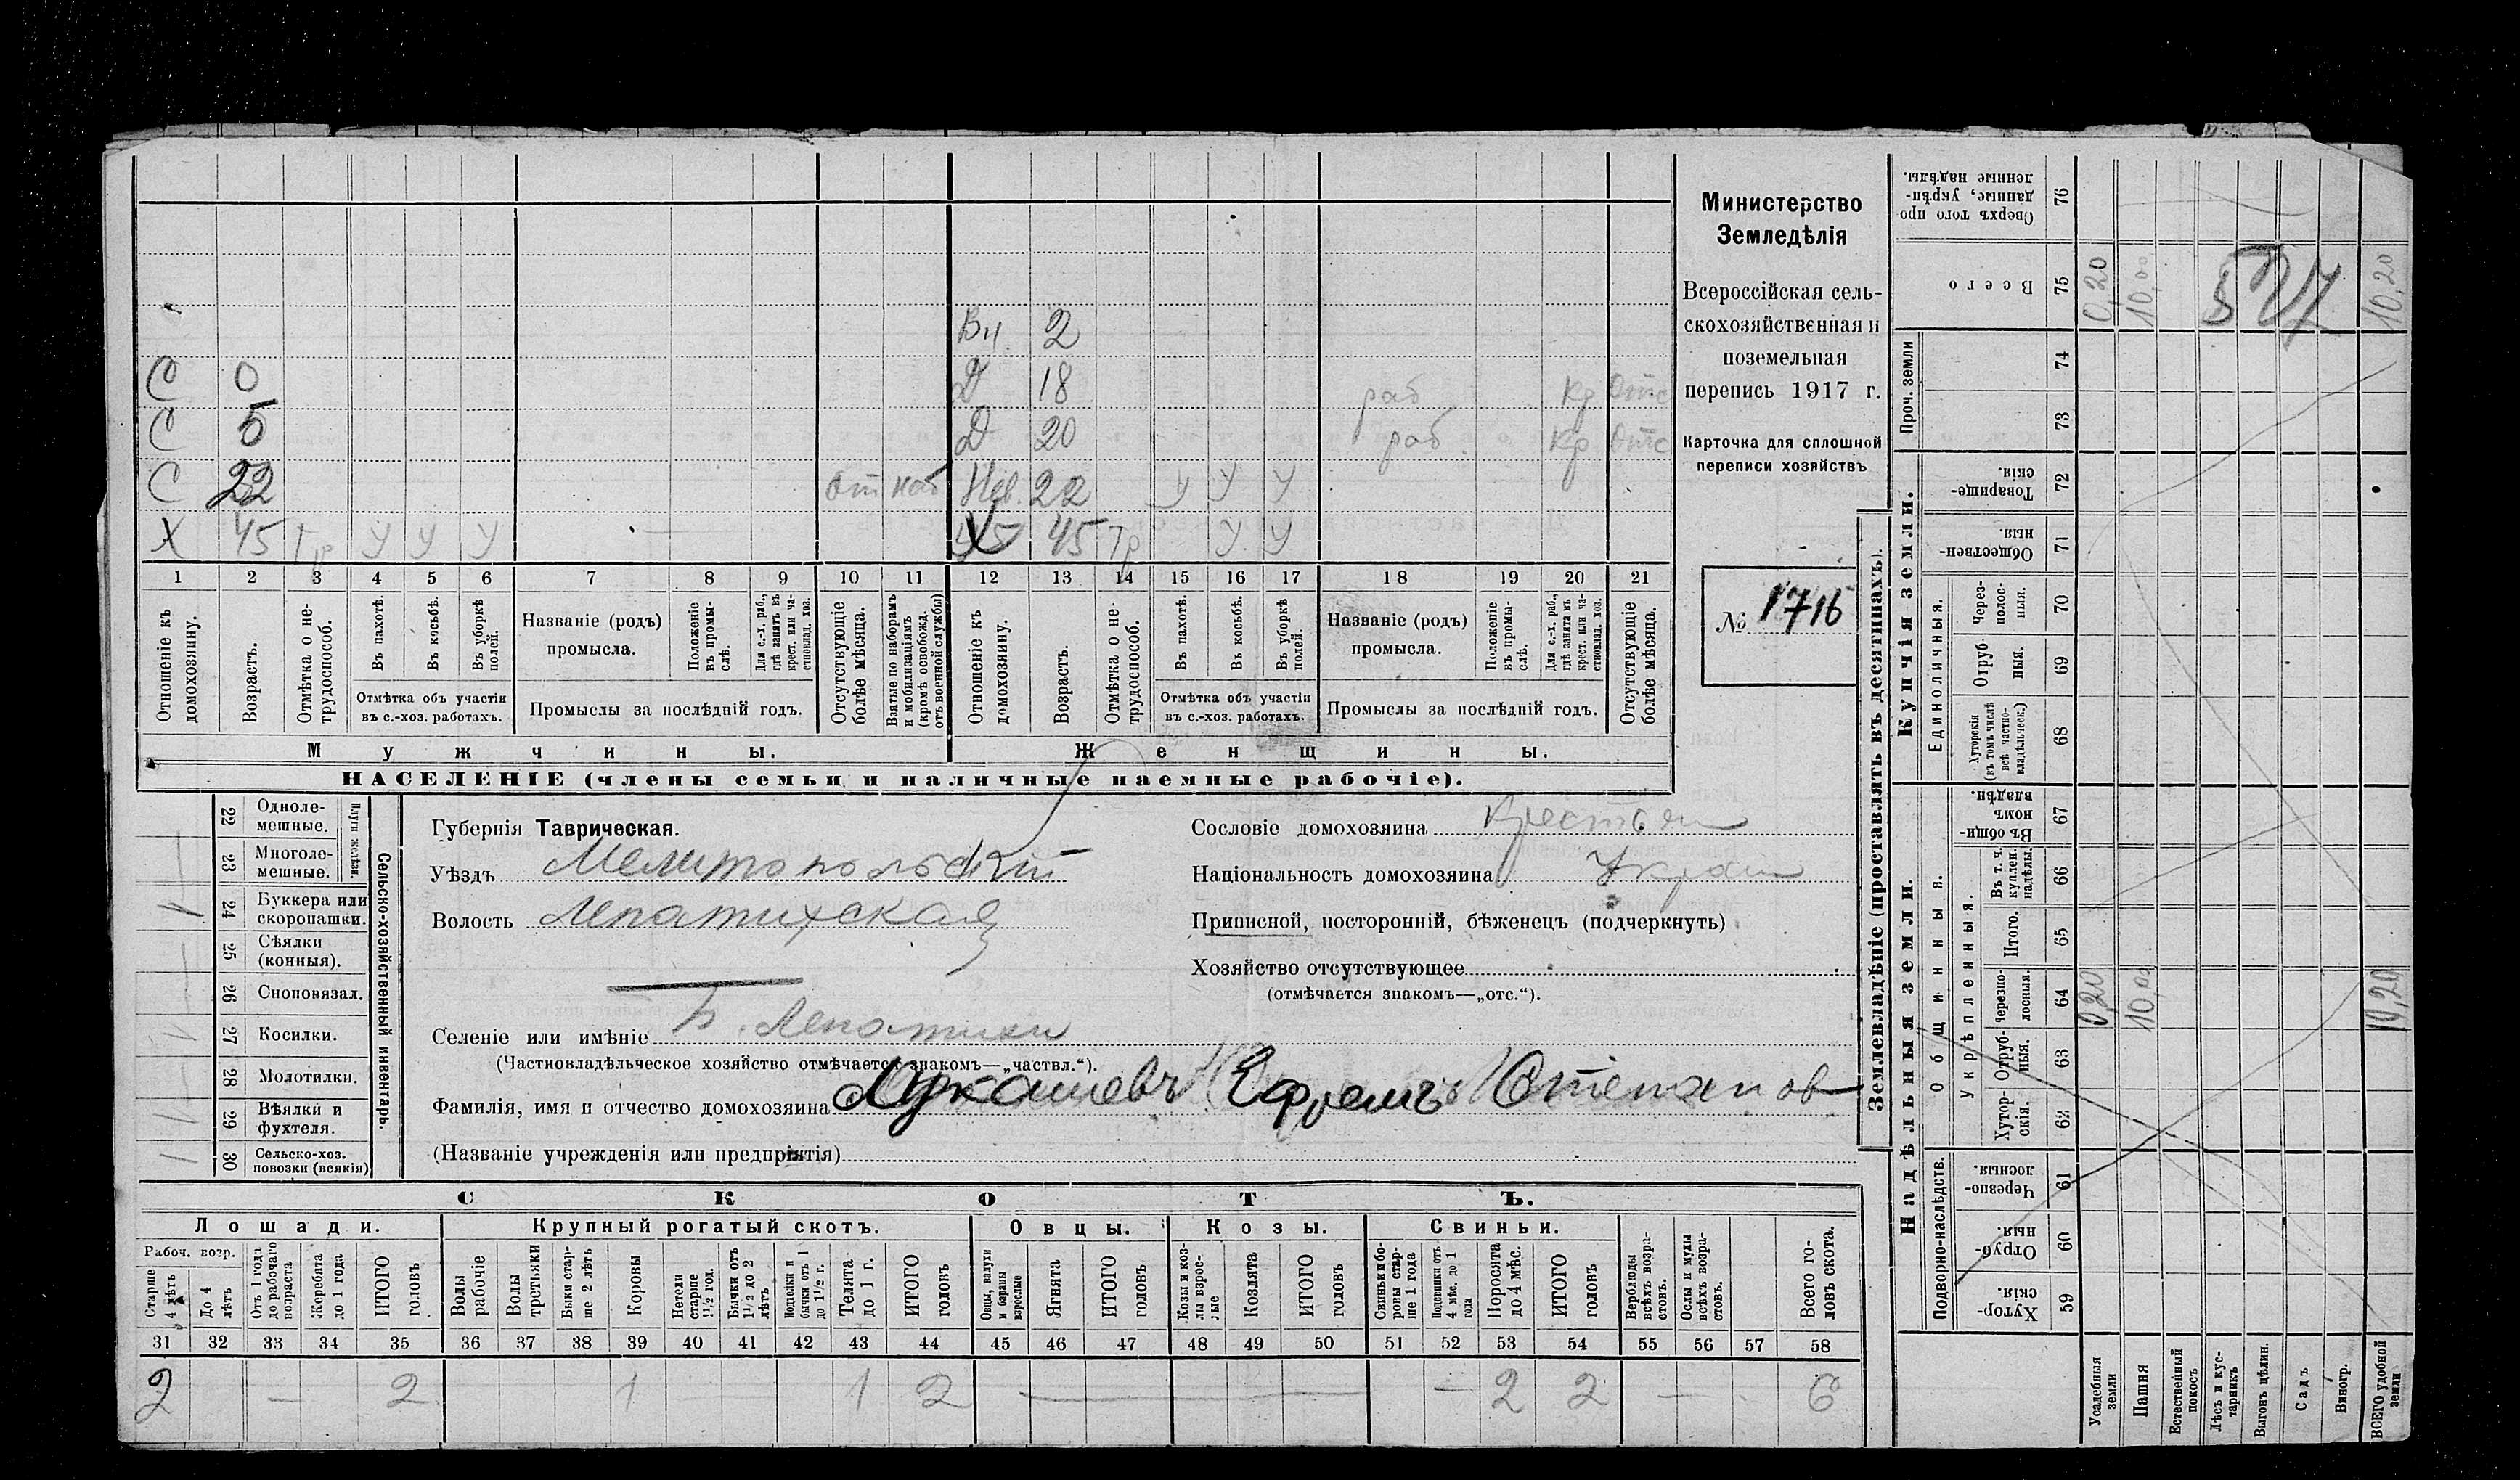 Министерство
Земледѣлія
Всероссійская сель-
скохозяйственная и
поземельная
перепись 1917 г.
Карточка для сплошной
переписи хозяйствъ
№ 1716
Вн. 2
С 0 Д 18 раб кр Отс
С 5 Д 20 раб кр Отс
С 22 От моб Нев. 22 У У У
Х 45 Тр У У У Х 45 Тр У У
1 2 3 4 5 6 7 8 9 10 11 12 13 14 15 16 17 18 19 20 21
Отношеніе къ домохозяину.
Возрастъ.
Отмѣтка о не-трудоспособ.
Въ пахотѣ.
Въ косьбѣ.
Въ уборкѣ полей.
Отмѣтка объ участіи
въ с.-хоз. работахъ.
Названіе (родъ)
промысла.
Положеніе въ промы-слѣ.
Для с.-х. раб., гдѣ занятъ въ крест. или ча-стновлад. хоз.
Промыслы за послѣдній годъ.
Отсутствующіе болѣе мѣсяца.
Взятые по наборамъ и мобилизаціямъ (кромѣ освобожд. отъ военной службы)
Отношеніе къ домохозяину.
Возрастъ.
Отмѣтка о не-трудоспособ.
Въ пахотѣ.
Въ косьбѣ.
Въ уборкѣ полей.
Отмѣтка объ участіи
въ с.-хоз. работахъ.
Названіе (родъ)
промысла.
Положеніе въ промы-слѣ.
Для с.-х. раб., гдѣ занята въ крест. или ча-стновлад. хоз.
Промыслы за послѣдній годъ.
Отсутствующіе болѣе мѣсяца.
Мужчины. Женщины.
НАСЕЛЕНІЕ (члены семьи и наличные наемные рабочіе).
Сельско-хозяйственный инвентарь.
Плуги желѣзн.
22 Одноле-мешные.
23 Многоле-мешные.
24 Буккера или скоропашки. 1
25 Сѣялки (конныя).
26 Сноповязал.
27 Косилки.
28 Молотилки.
29 Вѣялки и фухтеля.
30 Сельско-хоз. повозки (всякія) 1
Губернія Таврическая.
Уѣздъ Мелитопольскій
Волость Лепатихская
Селеніе или имѣніе Б. Лепатихи
(Частновладѣльческое хозяйство отмѣчается знакомъ—„частвл.“).
Фамилія, имя и отчество домохозяина Лукашевъ Ефремъ Степанов
(Названіе учрежденія или предпріятія)
Сословіе домохозяина Крестьян
Національность домохозяина Украин
Приписной, посторонній, бѣженецъ (подчеркнуть)
Хозяйство отсутствующее
(отмѣчается знакомъ—„отс.“).
СКОТЪ.
Лошади. Крупный рогатый скотъ. Овцы. Козы. Свиньи.
Рабоч. возр.
Старше 4 лѣтъ
До 4 лѣтъ
Отъ 1 года до рабочаго возраста
Жеребята до 1 года
ИТОГО головъ
Волы рабочіе
Волы третьяки
Быки стар-ше 2 лѣтъ
Коровы
Нетели старше 1½ год.
Бычки отъ 1½ до 2 лѣтъ
Подтелки и бычки отъ 1 до 1½ г.
Телята до 1 г.
ИТОГО головъ
Овцы, валухи и бараны взрослые
Ягнята
ИТОГО головъ
Козы и коз-лы взрос-лые
Козлята
ИТОГО головъ
Свиньи и бо-ровы стар-ше 1 года
Подсвинки отъ 4 мѣс. до 1 года
Поросята до 4 мѣс.
ИТОГО головъ
Верблюды всѣхъ возра-стовъ.
Ослы и мулы всѣхъ возра-стовъ.
Всего го-ловъ скота.
31 32 33 34 35 36 37 38 39 40 41 42 43 44 45 46 47 48 49 50 51 52 53 54 55 56 57 58
2 — 2 1 1 2 — — 2 2 — 6
Землевладѣніе (проставлять въ десятинахъ).
Сверхъ того про-данные, укрѣп-ленные надѣлы. 76
Всего 75 0,20 10,00 10,20
Проч. земли 74
73
Купчія земли.
Товарище-скія. 72
Обществен-ныя. 71
Единоличныя.
Через-полос-ныя. 70
Отруб-ныя. 69
Хуторскія (въ томъ числѣ всѣ частно-владѣльческ.) 68
Надѣльныя земли.
Общинныя.
Въ общи-номъ владѣн. 67
Укрѣпленныя.
Въ т. ч. куплен. надѣлы. 66
Итого. 65
Черезпо-лосныя. 64 0,20 10,00 10,20
Отруб-ныя. 63
Хутор-скія. 62
Подворно-наслѣдств.
Черезпо-лосныя. 61
Отруб-ныя. 60
Хутор-скія. 59
Усадебныя земли
Пашня
Естественный покосъ
Лѣсъ и кус-тарникъ
Выгонъ цѣлин.
Садъ
Виногр.
ВСЕГО удобной земли